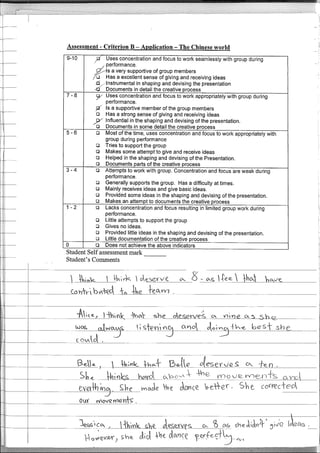 Assessment - Criterion B – Application – The Chinese world
9-10
Uses concentration and focus to work seamlessly with group during
performance.
Is a very supportive of group members
Has a excellent sense of giving and receiving ideas
Instrumental in shaping and devising the presentation
Documents in detail the creative process
7 - 8
Uses concentration and focus to work appropriately with group during
performance.
Is a supportive member of the group members
Has a strong sense of giving and receiving ideas
Influential in the shaping and devising of the presentation.
Documents in some detail the creative process
5 - 6
Most of the time, uses concentration and focus to work appropriately with
group during performance
Tries to support the group
Makes some attempt to give and receive ideas
Helped in the shaping and devising of the Presentation.
Documents parts of the creative process
3 - 4
Attempts to work with group. Concentration and focus are weak during
performance.
Generally supports the group. Has a difficulty at times.
Mainly receives ideas and give basic ideas.
Provided some ideas in the shaping and devising of the presentation.
Makes an attempt to documents the creative process
1 - 2
Lacks concentration and focus resulting in limited group work during
performance.
Little attempts to support the group
Gives no ideas.
Provided little ideas in the shaping and devising of the presentation.
Little documentation of the creative process
0
Does not achieve the above indicators
Student Self assessment mark
Student's Comments
I think I think I deserve a 8 - as I feel I that have
contributed to the team.
Alice, I think that she deserves a nine as she
was always listening and doing the best she
could.
Bella, I think that Belle deserves a ten.
She thinks hard about the movements and
everything. She made the dance better. She corrected
our movements.
Jessica, I think she deserves a 8 as she didn't give ideas.
However, she did the dance perfectly.